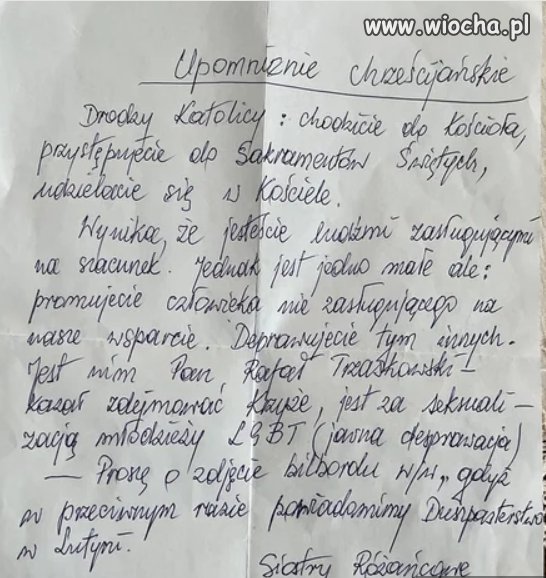 www.wiocha.pl
Upomnienie chrześcijańskie
Drodzy Katolicy: chodzicie do Kościoła,
przystępujecie do Sakramentów Świętych,
udzielacie się w Kościele.
Wynika, że jesteście ludźmi zasługującymi
na szacunek. Jednak jest jedno małe ale:
promujecie człowieka nie zasługującego na
nasze wsparcie. Deprawujecie tym innych.
Jest nim Pan Rafał Trzaskowski –
kazał zdejmować Krzyże, jest za seksuali –
zacją młodzieży LGBT (jawna deprawacja)
— Proszę o zdjęcie bilbordu w/w, gdyż
w przeciwnym razie powiadamimy Duszpasterstwo
w Lutyni.
Siostry Różańcowe